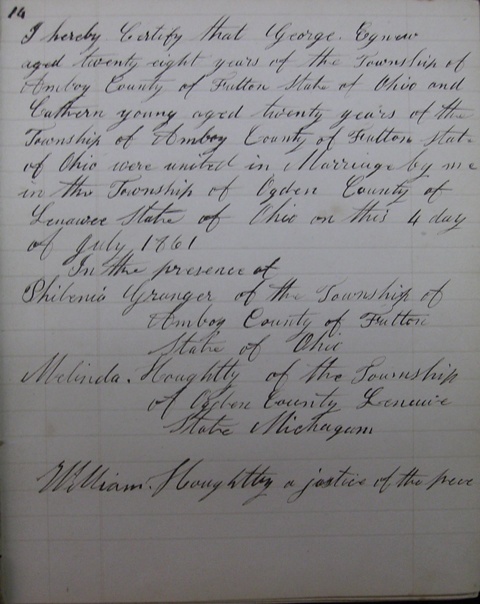 14
I hereby Certify that George. Egnew
aged twenty eight years of the Township of
Amboy County of Fulton State of Ohio and
Cathern young aged twenty years of the
Township of Amboy County of Fulton State
of Ohio were united in Marriage by me
in the Township of Ogden County of
Lenawee State of Ohio on this 4 day
of July 1861
In the presence of
Philenia Granger of the Township of
Amboy County of Fulton
State of Ohio
Melinda. Houghtty of the Township
of Ogden County Lenawee
State Michagam
William. Houghtty a justice of the pece